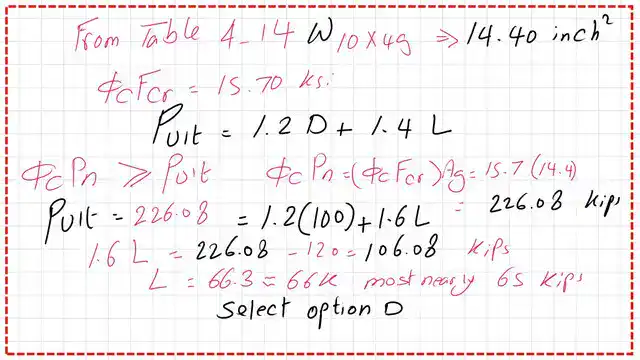 From Table 4_14 W10x49 ⇒ 14.40 inch²
ΦcFcr = 15.70 ksi
Pult = 1.2 D + 1.4 L
ΦcPn ⩾ Pult ΦcPn = (ΦcFcr) Ag = 15.7 (14.4)
Pult = 226.08 = 1.2(100) + 1.6 L = 226.08 Kips
1.6 L = 226.08 - 120 = 106.08 Kips
L = 66.3 = 66K most nearly 65 Kips
Select option D